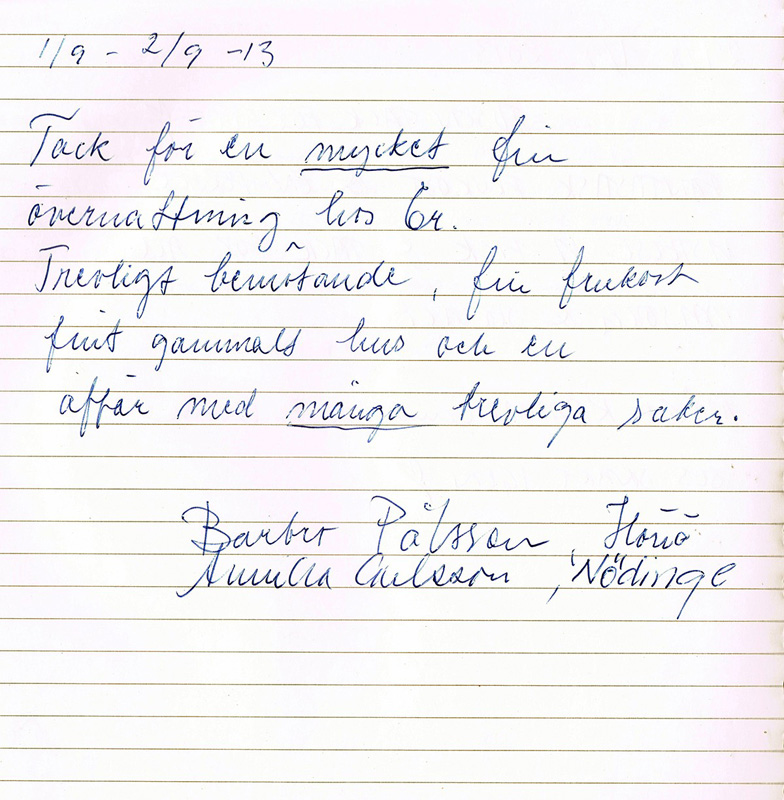 1/9 - 2/9 -13
Tack för en mycket fin
övernattning hos Er.
Trevligt bemötande, fin frukost
fint gammalt hus och en
affär med många trevliga saker.
Barbro Pålsson, Hönö
Annika Carlsson, Nödinge